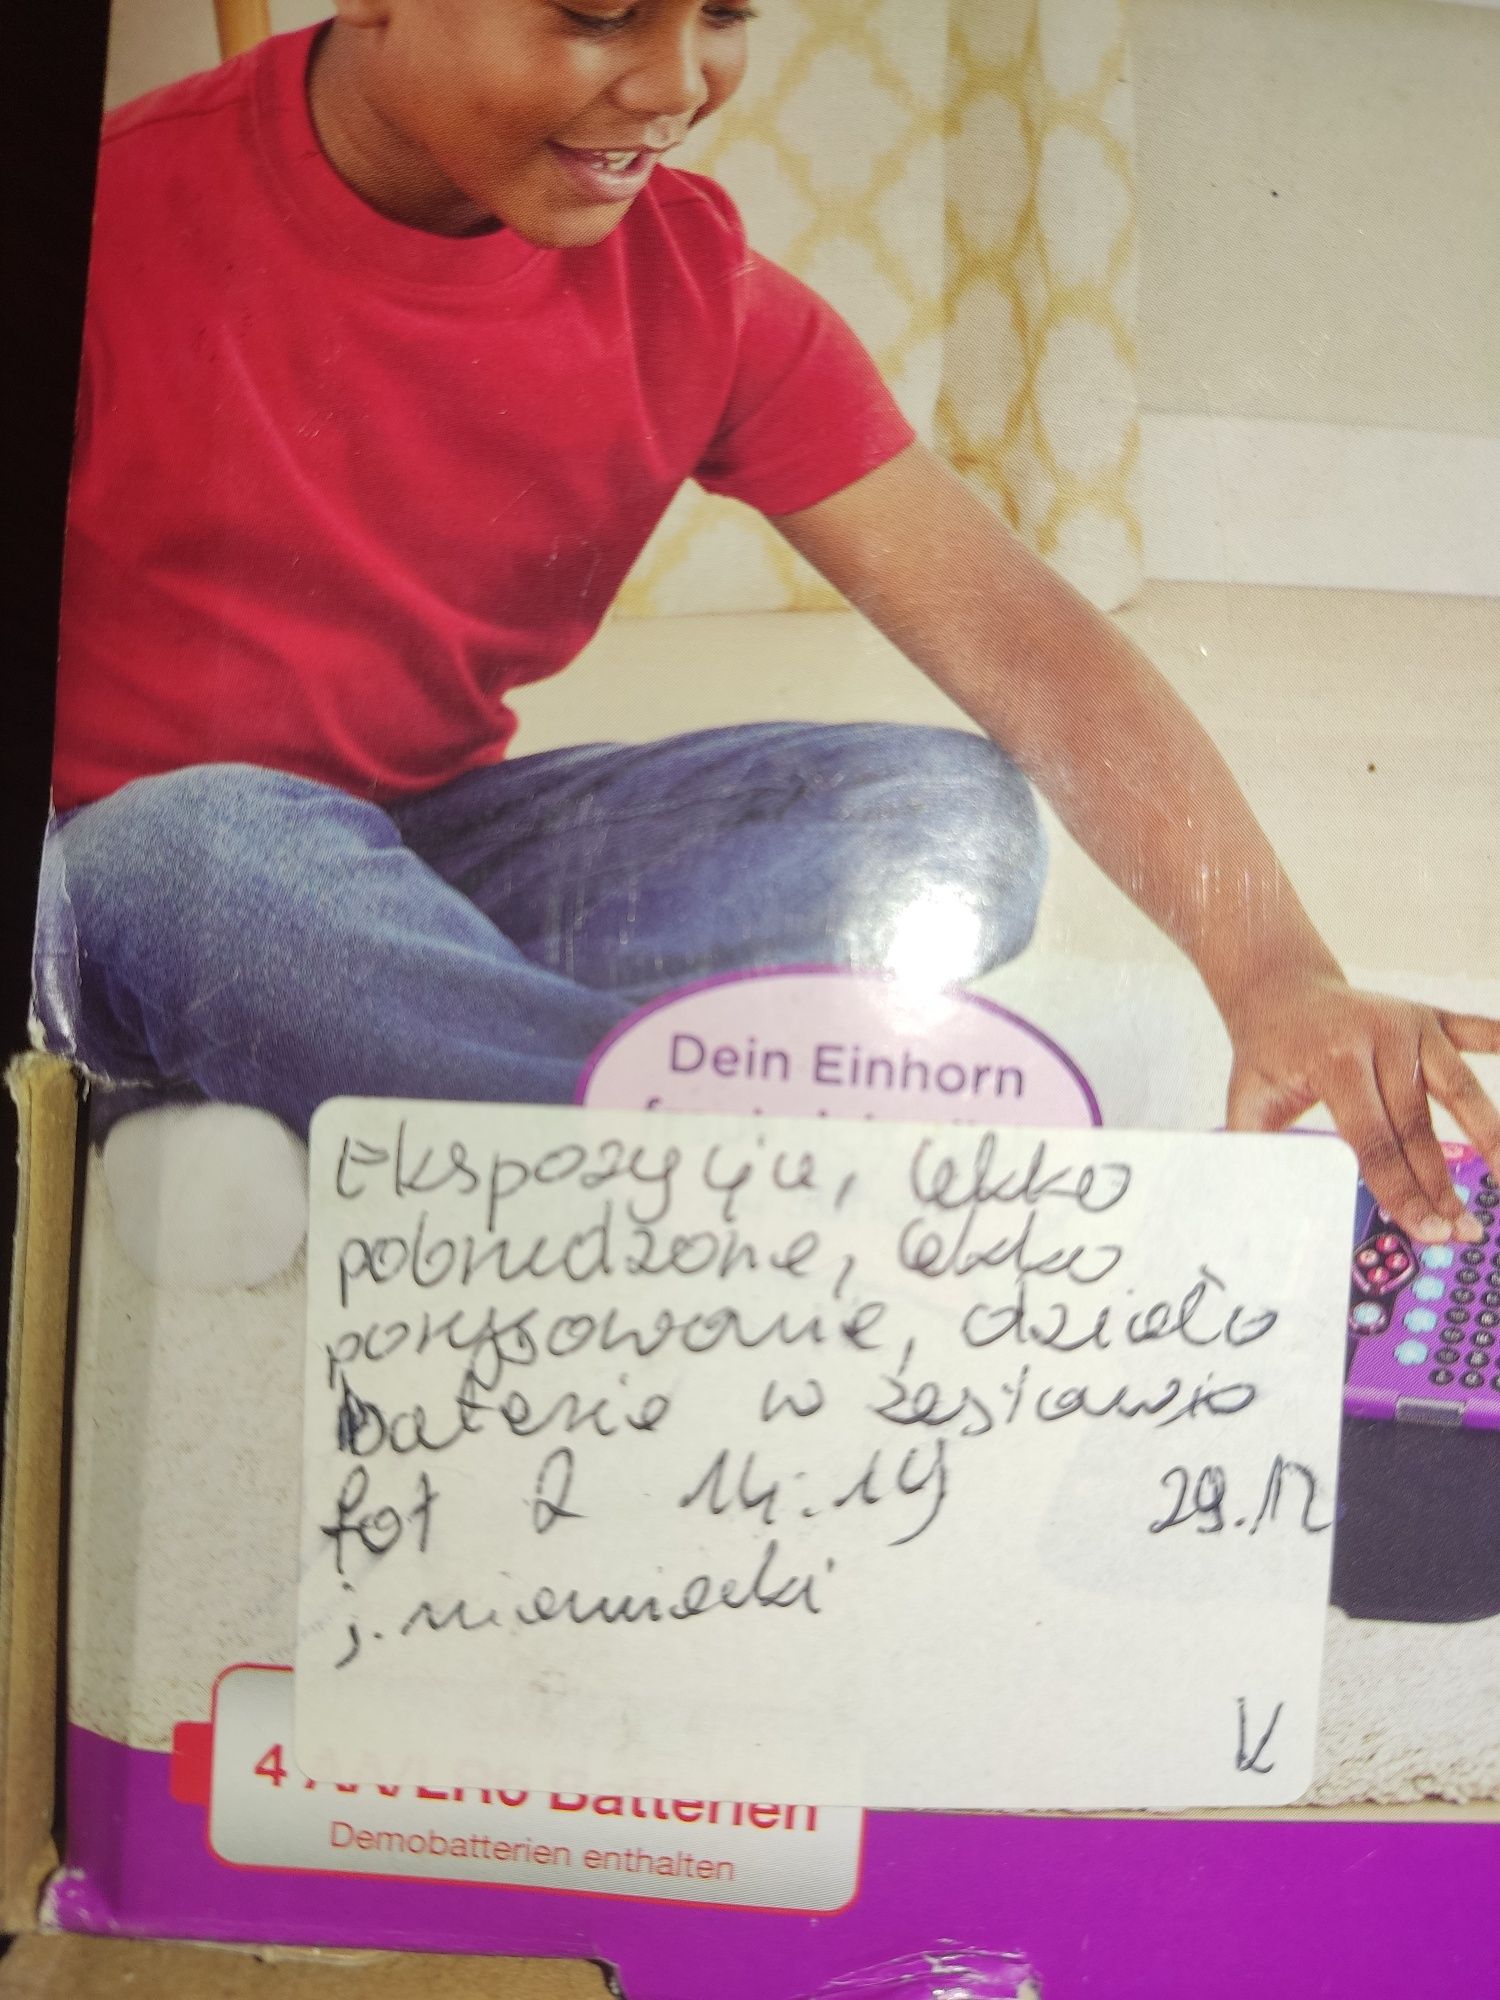 Dein Einhorn
Ekspozycja, lekko
pobrudzone, lekko
porysowane, działa
baterie w zestawie
fot 2 14:19 29.12
j. niemiecki
K
4 AA/LR6 Batterien
Demobatterien enthalten